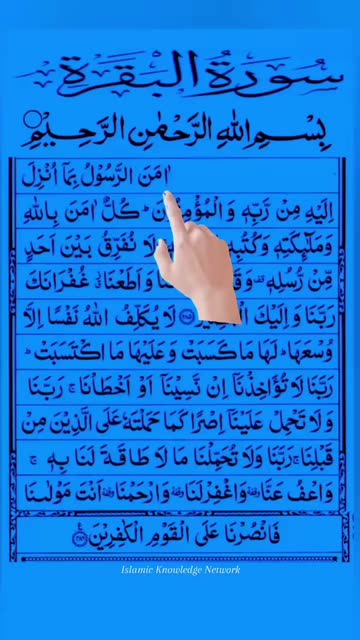 سُورَةُ الْبَقَرَةِ
بِسْمِ اللهِ الرَّحْمٰنِ الرَّحِيْمِ
اٰمَنَ الرَّسُوْلُ بِمَاۤ اُنْزِلَ
اِلَيْهِ مِنْ رَّبِّهٖ وَالْمُؤْمِنُوْنَ ؕ كُلٌّ اٰمَنَ بِاللهِ
وَمَلٰٓئِكَتِهٖ وَكُتُبِهٖ لَا نُفَرِّقُ بَيْنَ اَحَدٍ
مِّنْ رُّسُلِهٖ وَاَطَعْنَا غُفْرَانَكَ
رَبَّنَا وَاِلَيْكَ الْمَصِيْرُ ﴿۲۸۵﴾ لَا يُكَلِّفُ اللهُ نَفْسًا اِلَّا
وُسْعَهَا ؕ لَهَا مَا كَسَبَتْ وَعَلَيْهَا مَا اكْتَسَبَتْ ؕ
رَبَّنَا لَا تُؤَاخِذْنَاۤ اِنْ نَّسِيْنَاۤ اَوْ اَخْطَاْنَا ۚ رَبَّنَا
وَلَا تَحْمِلْ عَلَيْنَاۤ اِصْرًا كَمَا حَمَلْتَهٗ عَلَى الَّذِيْنَ مِنْ
قَبْلِنَا ۚ رَبَّنَا وَلَا تُحَمِّلْنَا مَا لَا طَاقَةَ لَنَا بِهٖ ۚ
وَاعْفُ عَنَّا ۥ وَاغْفِرْ لَنَا ۥ وَارْحَمْنَا ۥ اَنْتَ مَوْلٰىنَا
فَانْصُرْنَا عَلَى الْقَوْمِ الْكٰفِرِيْنَ ﴿۲۸۶﴾
Islamic Knowledge Network